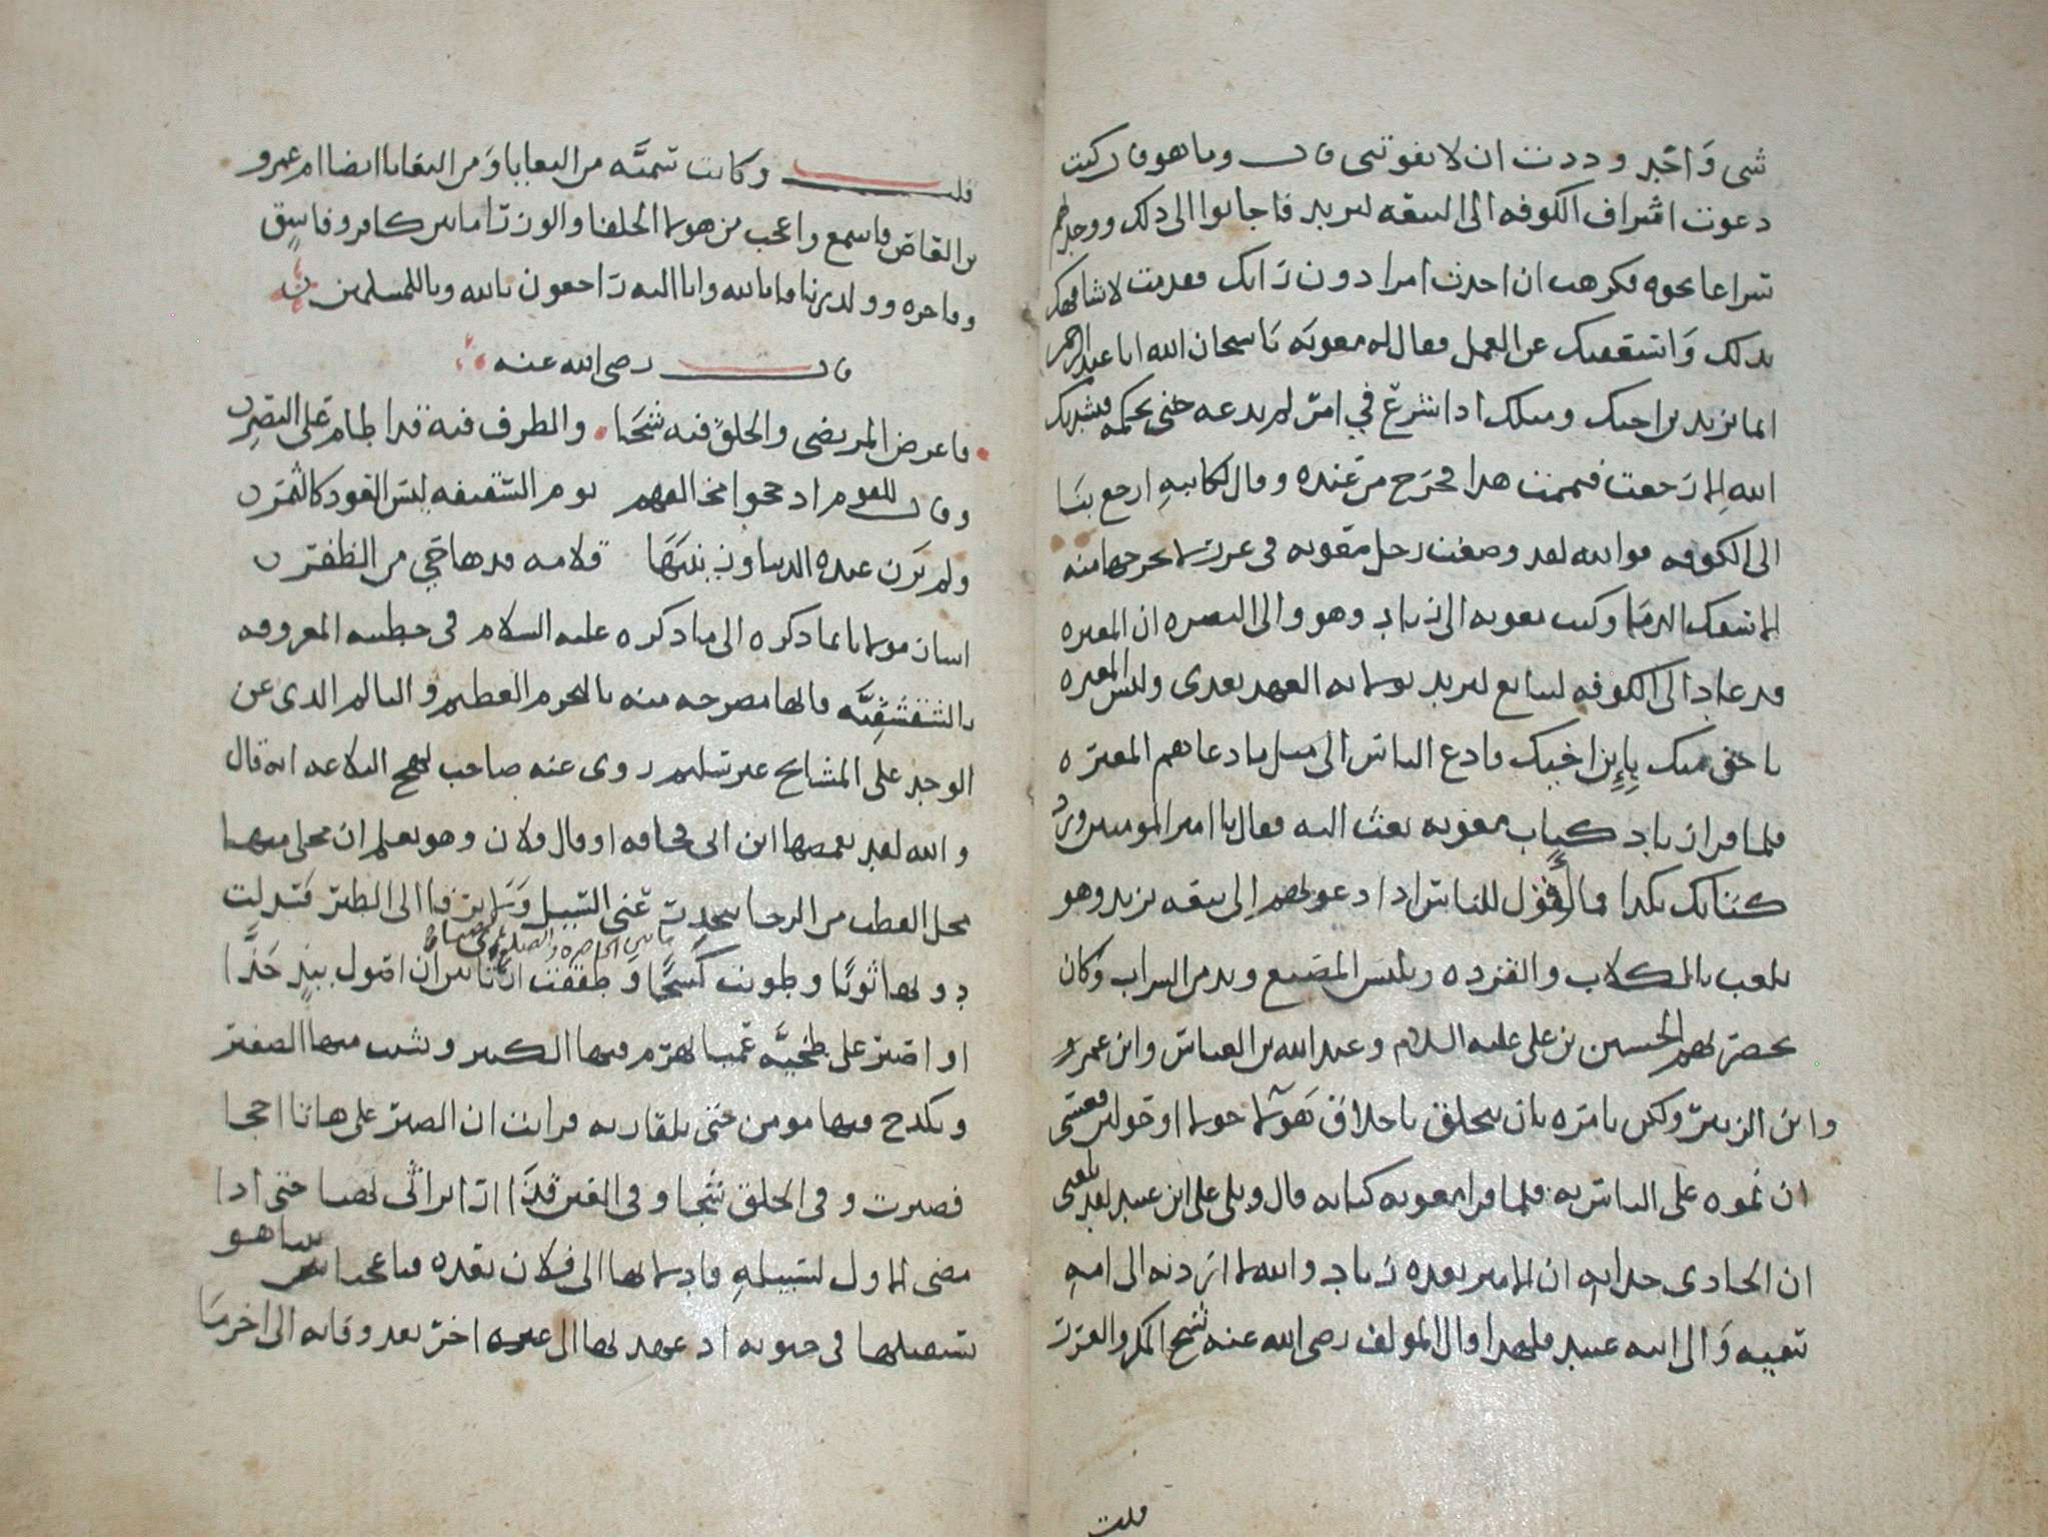 شى واحد وددت ان لا يفوتنى قال وما هو قال كنت
دعوت اشراف الكوفه الى البيعه ليزيد فاجابوا الى ذلك ووجدتهم
سراعا نحوه فكرهت ان احدث امرا دون رايك فقدمت لاشافهك
بذلك واستعفيك عن العمل فقال له معويه يا سبحان الله ابا عبد الرحمن
انما يزيد بن اخيك ومثلك اذا شرع في امر لم يدعه حتى يحكمه فنشدتك
الله الا رجعت فتممت هذا فخرج من عنده وقال لكاتبه ارجع بنا
الى الكوفه فوالله لقد وضعت رجل معويه فى غرز لا يخرجها منه
الا سفك الدما وكتب معويه الى زياد وهو والى البصره ان المغيره
قد عاد الى الكوفه ليبايع ليزيد بولايه العهد بعدى وليس المغيره
باحق منك بابن اخيك فادع الناس الى مثل ما دعاهم المغيره
فلما قرا زياد كتاب معويه بعث اليه فقال يا امير المومنين ورد
كتابك بكذا فما نقول للناس اذا دعوناهم الى بيعه يزيد وهو
يلعب بالكلاب والقرده ويلبس المصبع ويدمن الشراب وكان
بحضرتهم الحسين بن على عليه السلام وعبد الله بن العباس وابن عمر
وابن الزبير ولكن يامره بان يتخلق باخلاق هولا حولا او حولين فعسى
ان نموه على الناس به فلما قرا معويه كتابه قال ويلى على ابن عبيد لقد بلغنى
ان الحادى حدا به ان الامير بعده زياد والله لا اردنه الى امه
سميه والى ابيه عبيد فلهذا قال المولف رضى الله عنه شيخ المكر والغرر
قلت
قلت وكانت سميه من البغايا ومن البغايا ايضا ام عمرو
بن العاص فاسمع واعجب من هولا الخلفا والوزرا ما بين كافر وفاسق
وفاجره وولد زنا فانا لله وانا اليه راجعون يا لله ويا للمسلمين
قال رضى الله عنه
فاعرض المرتضى والحلق فيه شجا والطرف فيه قذا طام على البصر
وقال للقوم اذ حجوا بخالفهم يوم السقيفه ليس القود كالثمر
ولم تزن عنده الدنيا وزينتها قلامه قدها قى من الظفر
اشار مولانا بما ذكره الى ما ذكره عليه السلام فى خطبته المعروفه
بالشقشقيه فانها مصرحه منه بالجرم العظيم والتالم الذى عن
الوجد على المشايخ غير سليم روى عنه صاحب نهج البلاغه انه قال
والله لقد تقمصها ابن ابى قحافه او قال فلان وهو يعلم ان محلى منها
محل القطب من الرحا ينحدر عنى السيل ولا يرقا الى الطير فسدلت
دونها ثوبا وطويت كشحا وطفقت ارتاى بين ان اصول بيد جذا
او اصبر على طخيه عميا يهرم فيها الكبير ويشيب فيها الصغير
ويكدح فيها مومن حتى يلقا ربه فرايت ان الصبر على هاتا احجا
فصبرت وفى الحلق شجا وفى العين قذا ارا تراثى نهبا حتى اذا
مضى الاول لسبيله فادلا بها الى فلان بعده فيا عجبا بينا هو
يستقيلها فى حيوته اذ عهد بها الى غيره اخر بعد وفاته الى اخر ما